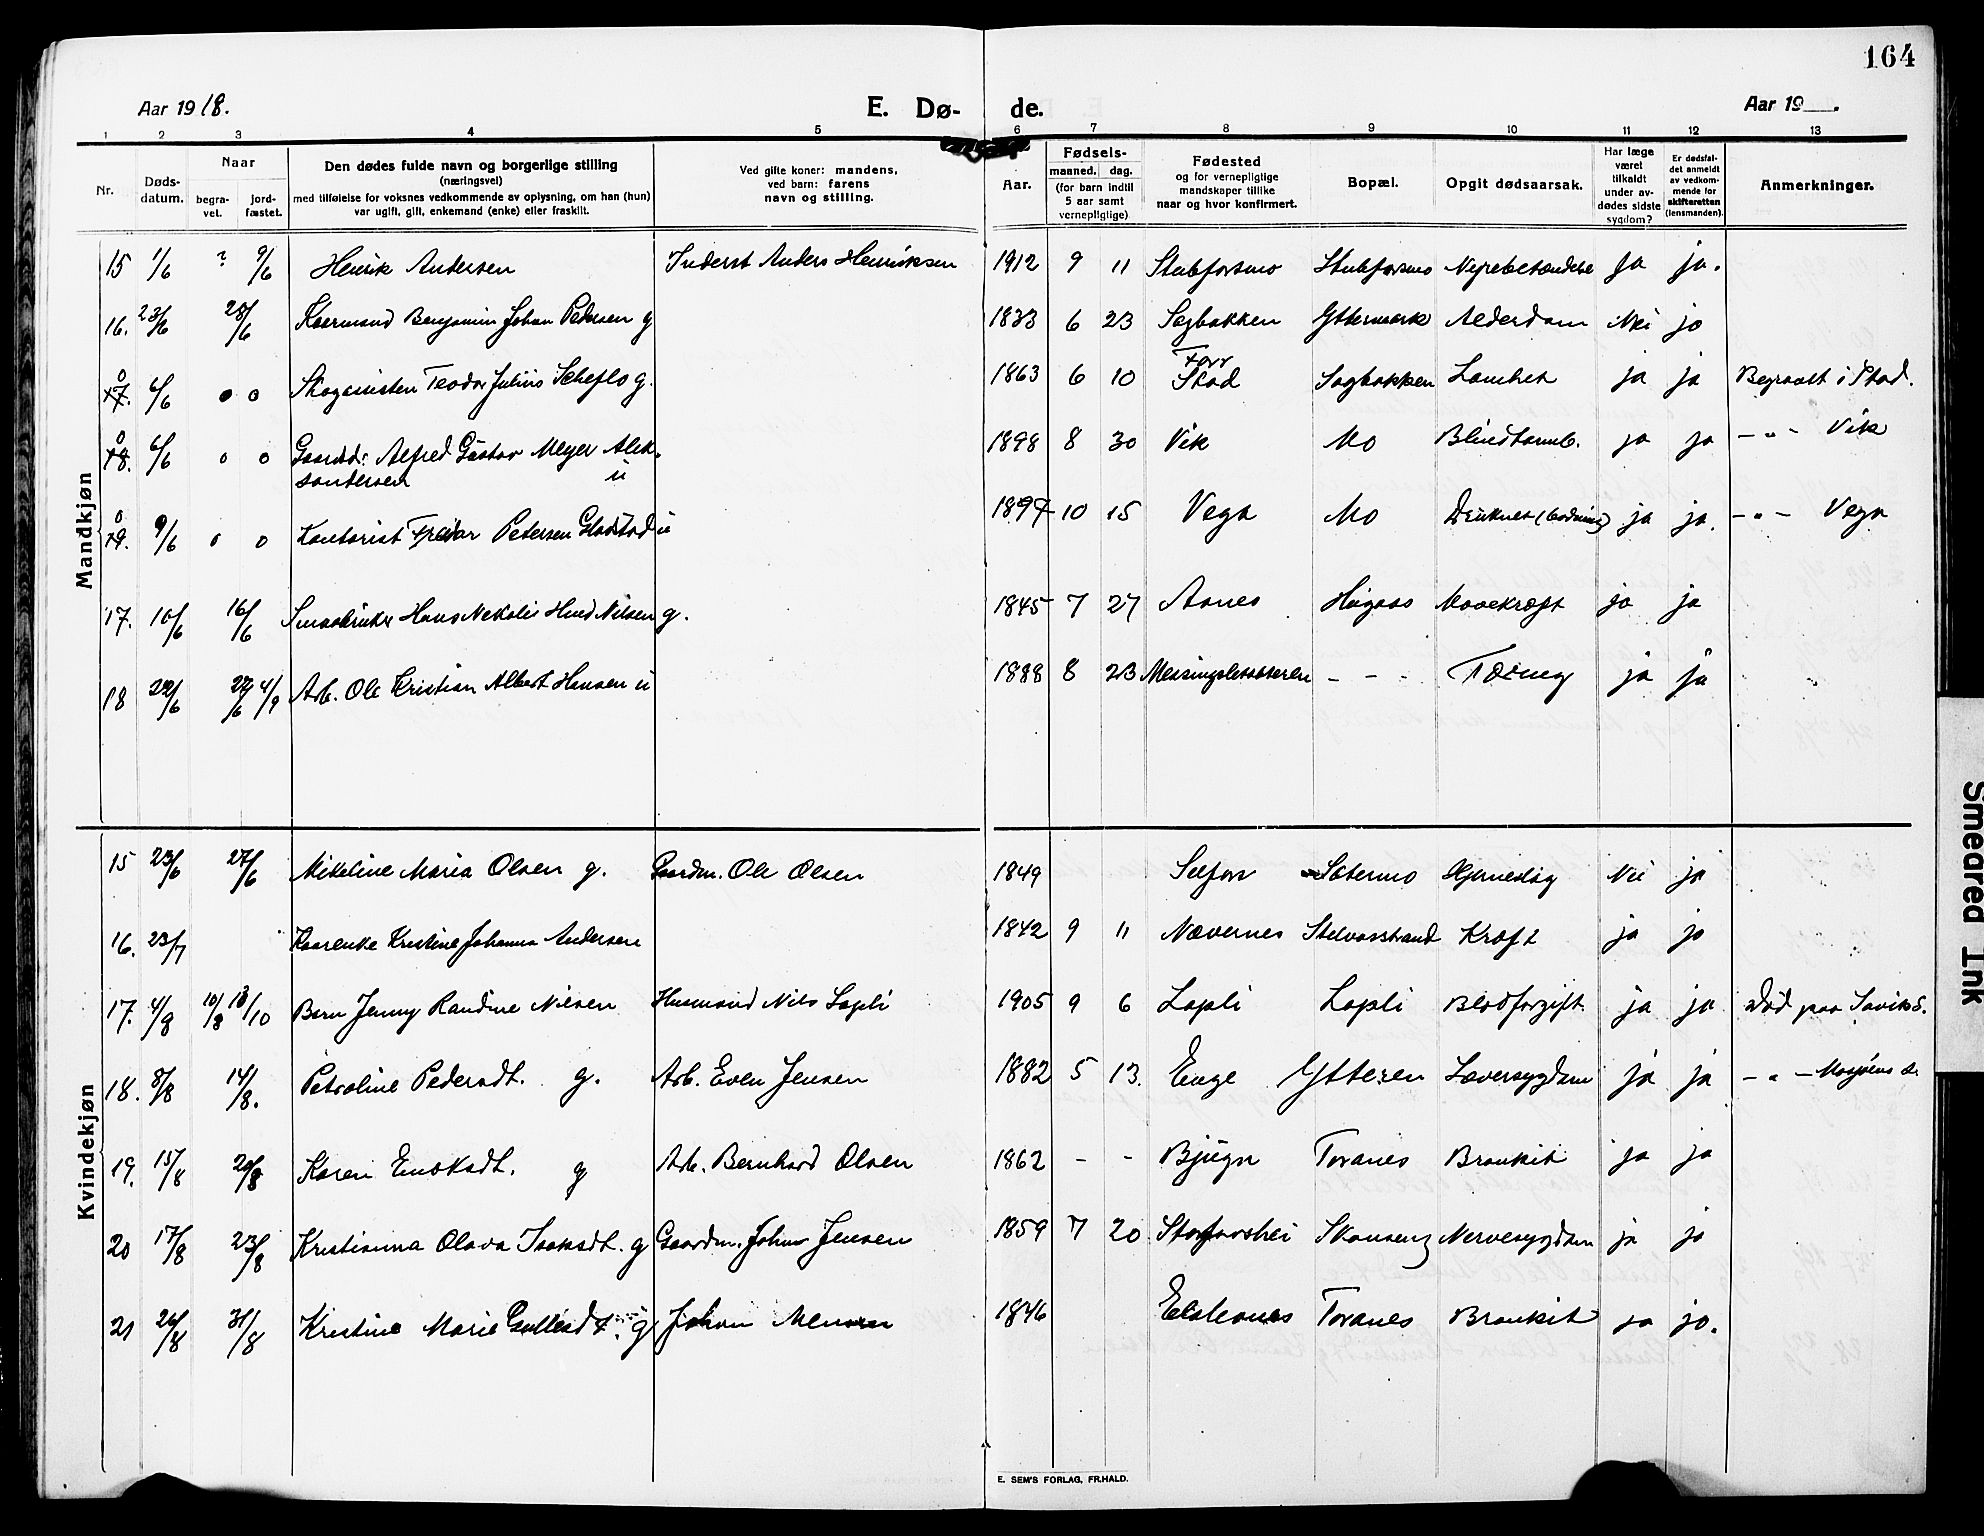 164
Aar 1918.
E. Dø-
de.
Aar 19 .
1 2 3 4 5 6 7 8 9 10 11 12 13
Nr.
Døds-
datum.
Naar
begra-
vet.
jord-
fæstet.
Den dødes fulde navn og borgerlige stilling
(næringsvei)
med tilføielse for voksnes vedkommende av oplysning, om han (hun)
var ugift, gift, enkemand (enke) eller fraskilt.
Ved gifte koner: mandens,
ved barn: farens
navn og stilling.
Aar.
Fødsels-
maaned. dag.
(for barn indtil
5 aar samt
vernepligtige)
Fødested
og for vernepligtige
mandskaper tillike
naar og hvor konfirmert.
Bopæl.
Opgit dødsaarsak.
Har læge
været
tilkaldt
under av-
dødes sidste
sygdom?
Er dødsfal-
det anmeldt
av vedkom-
mende for
skifteretten
(lensmanden).
Anmerkninger.
Mandkjøn
15 1/6 ? 9/6 Henrik Andersen Inderst Anders Henriksen 1912 9 11 Stabforsmo Stabforsmo Nyrebetændelse ja ja.
16. 23/6 28/6 Kaarmand Benjamin Johan Pedersen g 1833 6 23 Sagbakken Yttermark Alderdom Nei ja
0
17. 6/6 0 0 Skogassisten Teodor Julius Scheflo g. 1863 6 10 Stod Sagbakken ja ja Begravet i Stod.
0
18. 6/6 0 0 Gaardsdr: Alfred Gustav Meyer Alek-
sandersen u 1898 8 30 Vik Mo Blindtarmb. ja ja - " - Vik
0
19. 9/6 0 0 Kontorist Petersen Gladstad u 1897 10 15 Vega Mo Druknet (badning) ja ja. - " - Vega
17. 10/6 16/6 Smaabruker Hans Nekolai Hind Nilsen g. 1845 7 27 Aanes Mavekræft ja ja
18 22/6 27/6 4/9 Arb. Ole Kristian Albert Hansen u 1888 8 23 Messingsletsæteren - - - Tæring ja ja
Kvindekjøn
15 23/6 27/6 Mikeline Maria Olsen g. Gaardm. Ole Olsen 1849 Selfors Sætermo Hjerneslag Nei ja
16. 23/7 Kaarenke Kristine Johanna Andersen 1842 9 11 Nævernes Stelvosstrand Kræft ja ja
17. 4/8 10/8 13/10 Barn Jenny Randine Nilsen Husmand Nils Lapli 1905 9 6 Lapli Lapli Blodforgift. ja ja Död paa
18. 8/8 14/8. Petroline Pedersdt. g. Arb. Even Jensen 1882 5 13. Enge Ytteren Leversygdom ja ja - " -
19. 15/8 20/8 Karen Enoksdt. g Arb. Bernhard Olsen 1862 - - Bjugn Toranes Bronkit ja ja
20 17/8 23/8 Kristianna Olava Isaksdt. g Gaardm. Johan Jensen 1859 7 20 Storforshei Skonseng Nervesygdom ja ja
21 26/8 31/8 Kristine Marie g Johan 1846 Toranes Bronkit ja ja.
E. SEM'S FORLAG, FR.HALD.
Smeared Ink